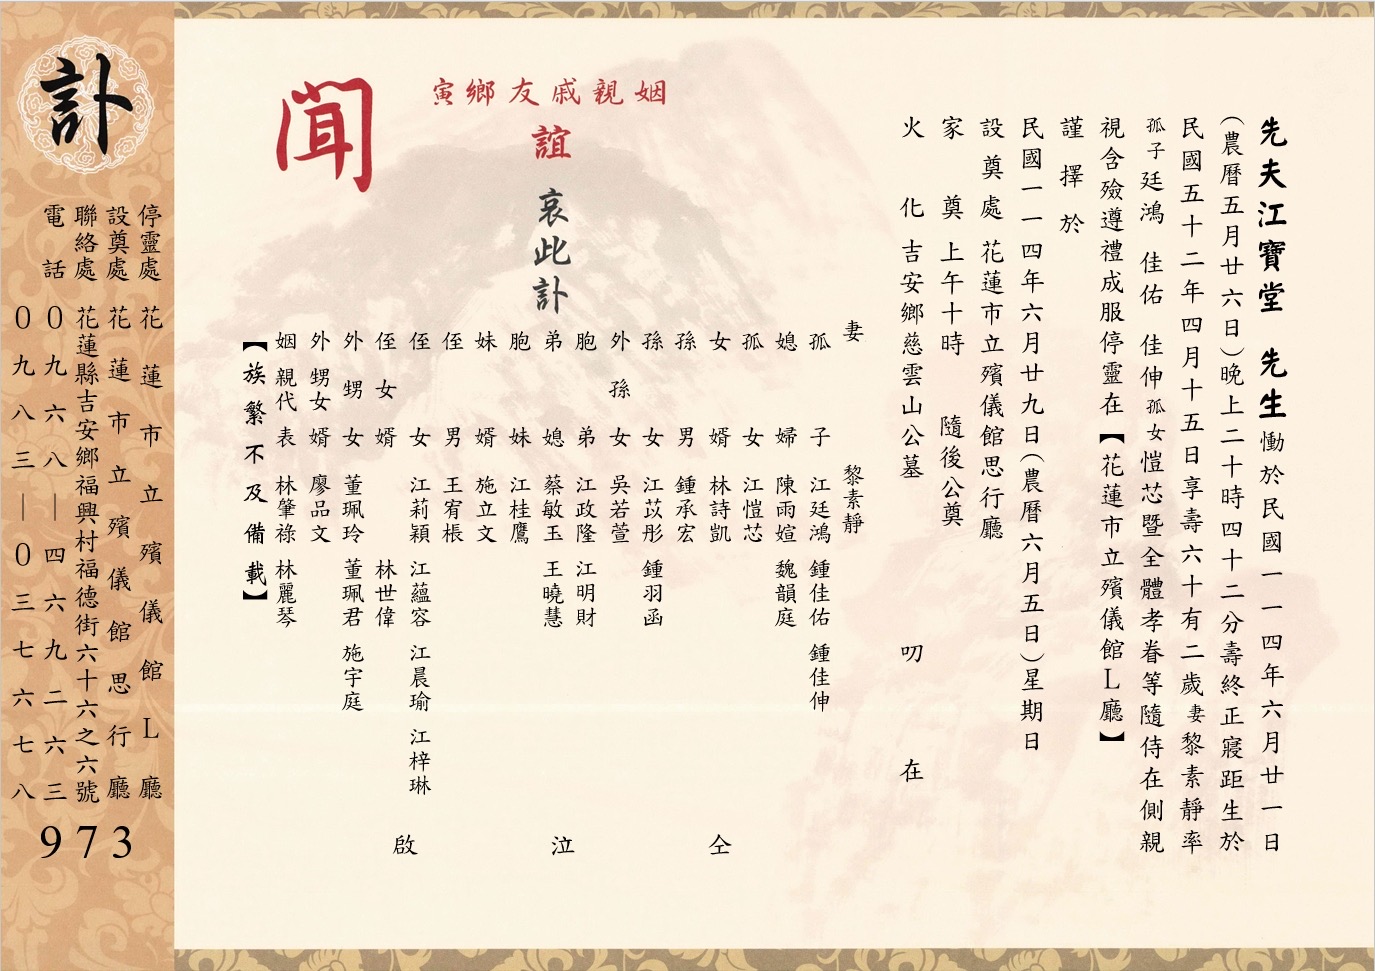 先夫江寶堂 先生慟於民國一一四年六月廿一日
(農曆五月廿六日)晚上二十時四十二分壽終正寢距生於
民國五十二年四月十五日享壽六十有二歲妻黎素靜率
孤子廷鴻 佳佑 佳伸孤女愷芯暨全體孝眷等隨侍在側親
視含殮遵禮成服停靈在【花蓮市立殯儀館L廳】
謹擇於
民國一一四年六月廿九日(農曆六月五日)星期日
設奠處花蓮市立殯儀館思行廳
家奠上午十時 隨後公奠
火化吉安鄉慈雲山公墓
叨在
寅鄉友戚親姻
誼
哀此訃
聞
妻 黎素靜
孤子 江廷鴻 鍾佳佑 鍾佳伸
媳婦 陳雨媗 魏韻庭
孤女 江愷芯
女婿 林詩凱
孫男 鍾承宏
孫女 江苡彤 鍾羽函
外孫女 吳若萱
胞弟 江政隆 江明財
弟媳 蔡敏玉 王曉慧
胞妹 江桂鷹
妹婿 施立文
侄男 王宥棖
侄女 江莉穎 江蘊容 江晨瑜 江梓琳
侄女婿 林世偉
外甥女 董珮玲 董珮君 施宇庭
外甥女婿 廖品文
姻親代表 林肇祿 林麗琴
【族繁不及備載】
仝泣啟
訃
停靈處 花蓮市立殯儀館L廳
設奠處 花蓮市立殯儀館思行廳
聯絡處 花蓮縣吉安鄉福興村福德街六十六之六號
電話 0九六八—四六九二六三
0九八三—0三七六七八
973